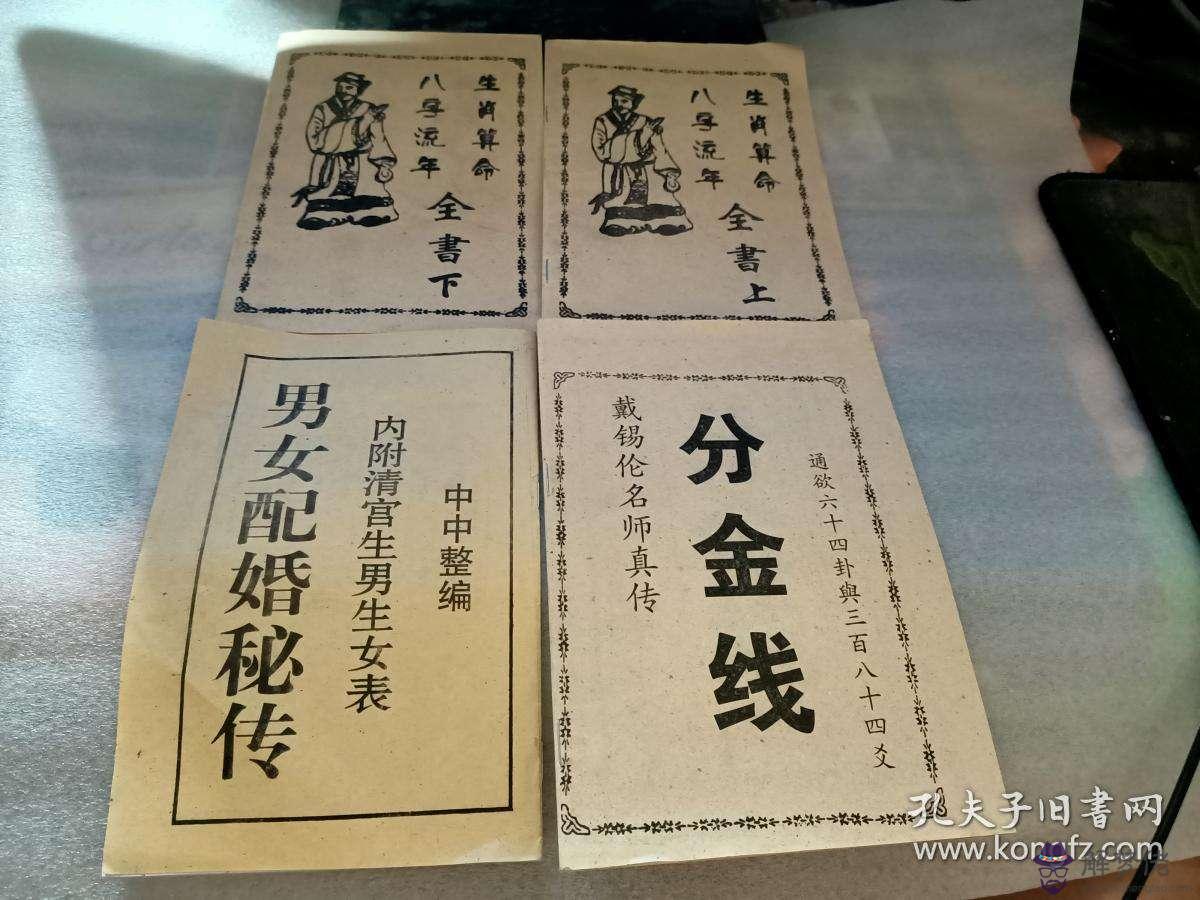 生肖算命
八字流年
全書下
生肖算命
八字流年
全書上
中中整编
内附清宫生男生女表
男女配婚秘传
通欲六十四卦與三百八十四爻
分金线
戴锡伦名师真传
孔夫子旧書网
www.kongfz.com